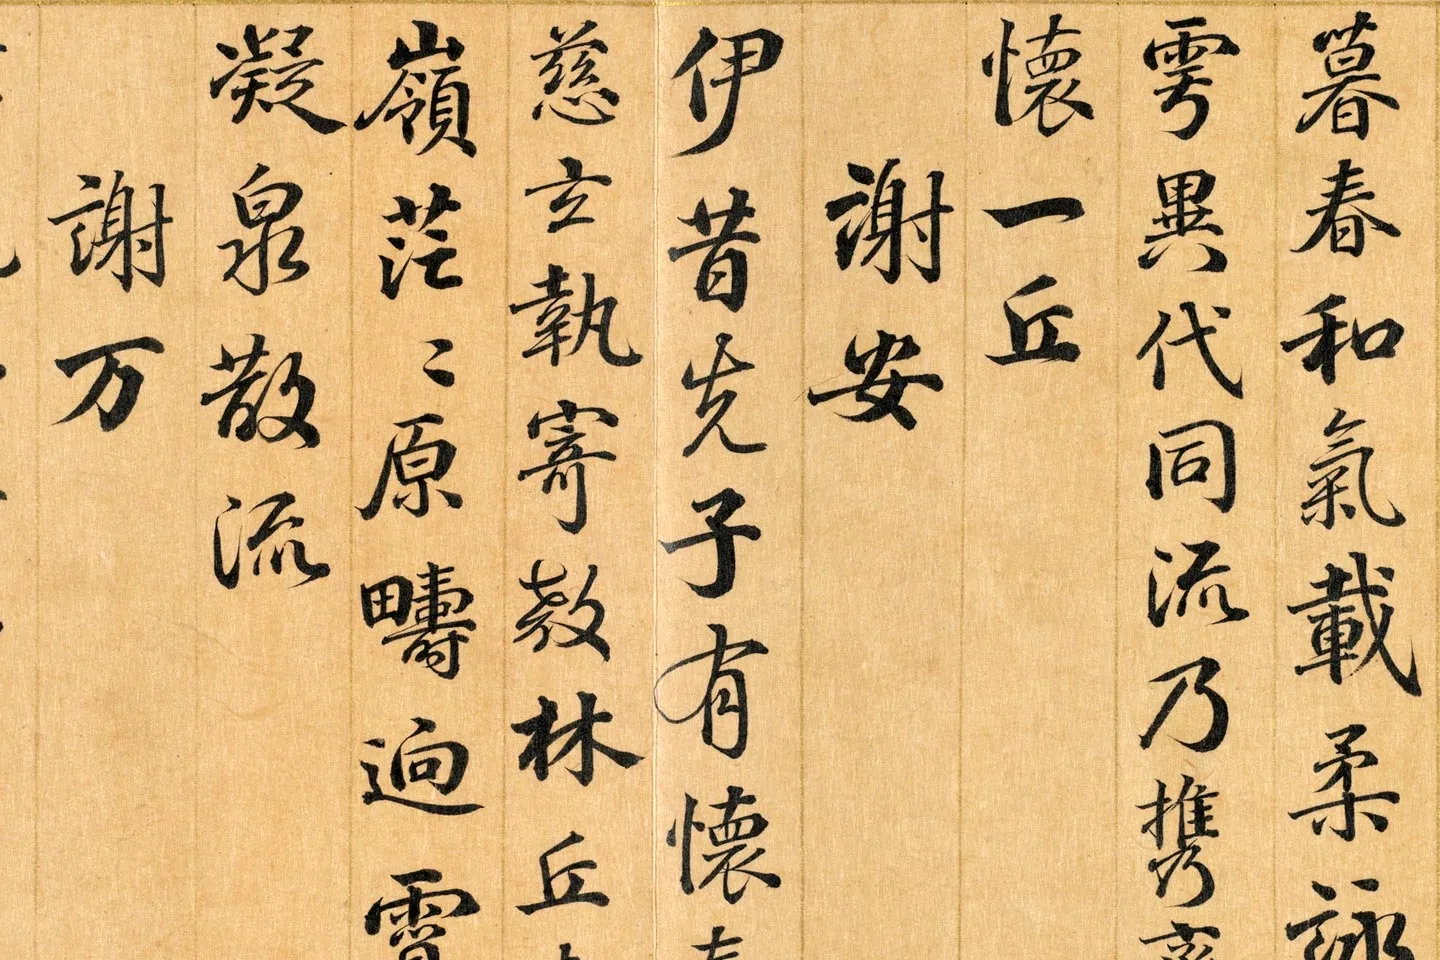 暮春和氣載柔詠
雩異代同流乃携齊
懷一丘
謝安
伊昔先子有懷春
慈立執寄敖林丘
嶺茫〻原疇逈霄
凝泉散流
謝万